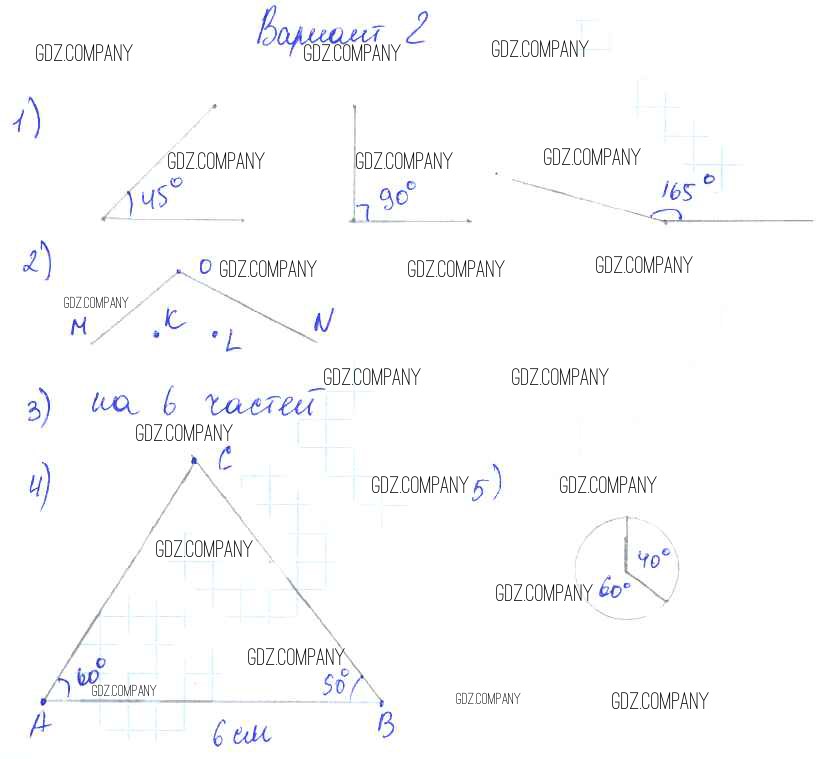 Вариант 2
GDZ.COMPANY GDZ.COMPANY GDZ.COMPANY
1)
GDZ.COMPANY GDZ.COMPANY GDZ.COMPANY
45° 90° 165°
2) O GDZ.COMPANY GDZ.COMPANY GDZ.COMPANY
GDZ.COMPANY
M K L N
GDZ.COMPANY GDZ.COMPANY
3) на 6 частей
GDZ.COMPANY
4) C GDZ.COMPANY 5) GDZ.COMPANY
GDZ.COMPANY 40°
GDZ.COMPANY 60°
GDZ.COMPANY
60° GDZ.COMPANY 50° GDZ.COMPANY GDZ.COMPANY
A 6 см B